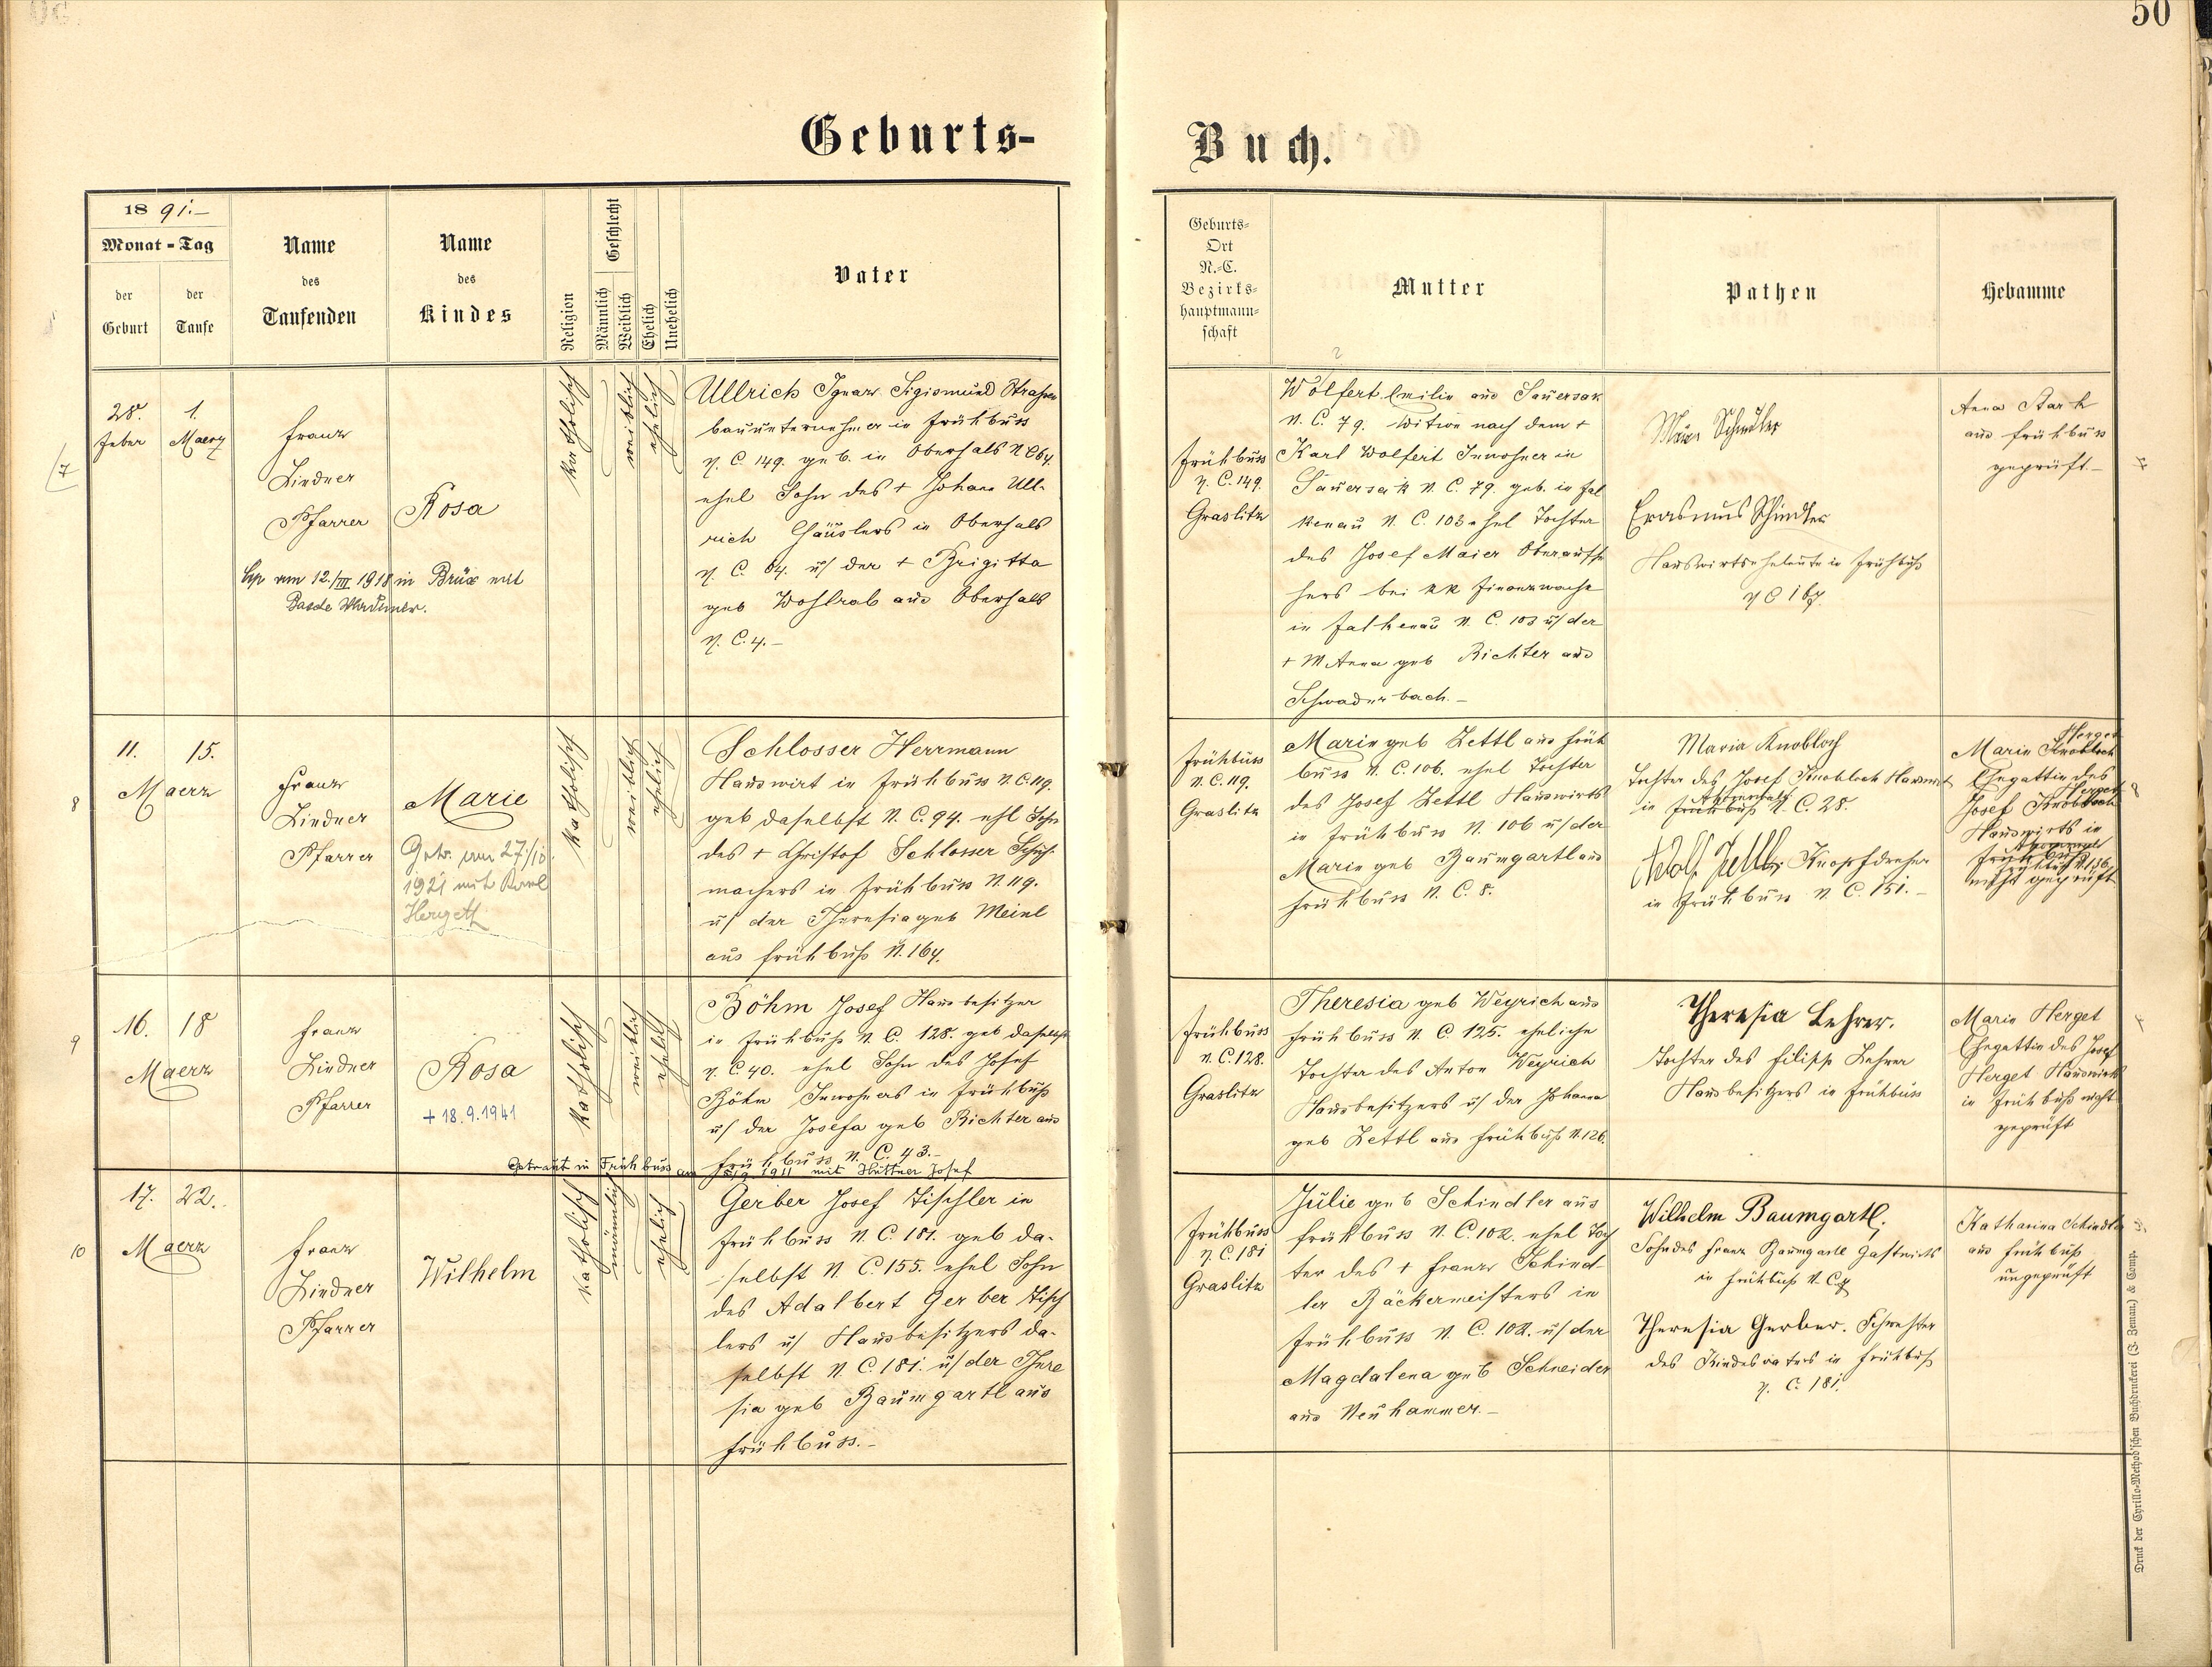 50
Geburts-
Buch.
1891.-
Monat-Tag
der Geburt
der Taufe
Name des Taufenden
Name des Kindes
Religion
Geschlecht
Männlich
Weiblich
Ehelich
Unehelich
Vater
Geburts-Ort N.-C. Bezirks-hauptmann-schaft
Mutter
Pathen
Hebamme
7
28. Feber
1. Maerz
Franz
Lindner
Pfarrer
Rosa
am 12./III 1918 in Brüx mit
katholisch
weiblich
ehelich
Ullrich Ignaz Sigismund Straßen
bauunternehmer in Frühbuss
N. C. 149. geb. in Oberhals N C 64.
ehel Sohn des + Johann Ull-
rich Häuslers in Oberhals
N. C. 64. u/ der + Brigitta
geb Wohlrab aus Oberhals
N. C. 4.-
Frühbuss
N. C. 149.
Graslitz
Wolfert Emilie aus Sauersak
N. C. 79. Witwe nach dem +
Karl Wolfert Inwohner in
Sauersak N. C. 79. geb. in Fal
kenau N. C. 103 ehel Tochter
des Josef Maier Oberaufse
hers bei kk Finanzwache
in Falkenau N. C. 103 u/ der
+ M Anna geb Richter aus
Schwaderbach.-
Schindler
Erasmus Schindler
Hauswirtseheleute in Frühbuß
N C 167.
Anna Stark
aus Frühbuss
geprüft.-
8
11. 15.
Maerz
Franz
Lindner
Pfarrer
Marie
Getr. am 27/10.
1921 mit Karl
Hergeth
katholisch
weiblich
ehelich
Schlosser Herrmann
Hauswirt in Frühbuss N. C. 119.
geb daselbst N. C. 94. ehl Sohn
des + Christof Schlosser Schuh-
machers in Frühbuss N. 119.
u/ der Theresia geb Meinl
aus Frühbuß N. 164.
Frühbuss
N. C. 119.
Graslitz
Marie geb Zettl aus Früh
buss N. C. 106. ehel Tochter
des Josef Zettl Hauswirts
in Frühbuss N. 106 u/ der
Marie geb Baumgartl aus
Frühbuss N. C. 8.
Maria Knobloch
Tochter des Josef Knobloch Hauswirt
in Frühbuß N. C. 28.
Adolf Zettl, Knopfdreher
in Frühbuss N. C. 151.-
Herget
Marie Knobloch
Ehegattin des
Herget
Josef Knobloch
Hauswirts in
Frühbuß N. 136
nicht geprüft
9
16. 18
Maerz
Franz
Lindner
Pfarrer
Rosa
+ 18.9.1941
katholisch
weiblich
ehelich
Böhm Josef Hausbesitzer
in Frühbuß N. C. 128. geb daselbst
N. C. 40. ehel Sohn des Josef
Böhm Inwohners in Frühbuß
u/ der Josefa geb Richter aus
Frühbuss N. C. 43.-
Getraut in Frühbuss am 1911 mit Hüttner Josef
Frühbuss
N. C. 128.
Graslitz
Theresia geb Weyrich aus
Frühbuss N. C. 125. eheliche
Tochter des Anton Weyrich
Hausbesitzers u/ der Johanna
geb Zettl aus Frühbuß N. 126.
Theresia Lehrer.
Tochter des Filipp Lehrer
Hausbesitzers in Frühbuss
Marie Herget
Ehegattin des Josef
Herget Hauswirts
in Frühbuß nicht
geprüft
10
17. 22.
Maerz
Franz
Lindner
Pfarrer
Wilhelm
katholisch
männlich
ehelich
Gerber Josef Tischler in
Frühbuss N. C. 181. geb da-
selbst N. C. 155. ehel Sohn
des Adalbert Gerber Tisch
lers u/ Hausbesitzers da-
selbst N. C. 181. u/ der There
sia geb Baumgartl aus
Frühbuss.-
Frühbuss
N. C. 181
Graslitz
Julie geb Schindler aus
Frühbuss N. C. 102. ehel Toch
ter des + Franz Schind-
ler Bäckermeisters in
Frühbuss N. C. 102. u/ der
Magdalena geb Schneider
aus Neuhammer.-
Wilhelm Baumgartl,
Sohn des Franz Baumgartl Gastwirts
in Frühbuß N. C.
Theresia Gerber. Schwester
des Kindesvaters in Frühbuß
N. C. 181.
Katharina Schindler
aus Frühbuß
ungeprüft
Druck der Cyrillo-Method'schen Buchdruckerei (J. Zeman) & Comp.